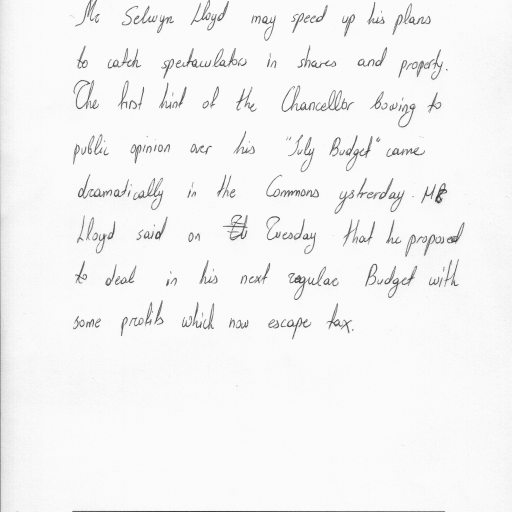 Mr Selwyn Lloyd may speed up his plans
to catch spectaculators in shares and property.
The first hint of the Chancellor bowing to
public opinion over his "July Budget" came
dramatically in the Commons ystrerday. MR
Lloyd said on Tuesday that he proposed
to deal in his next regular Budget with
some profits which now escape tax.